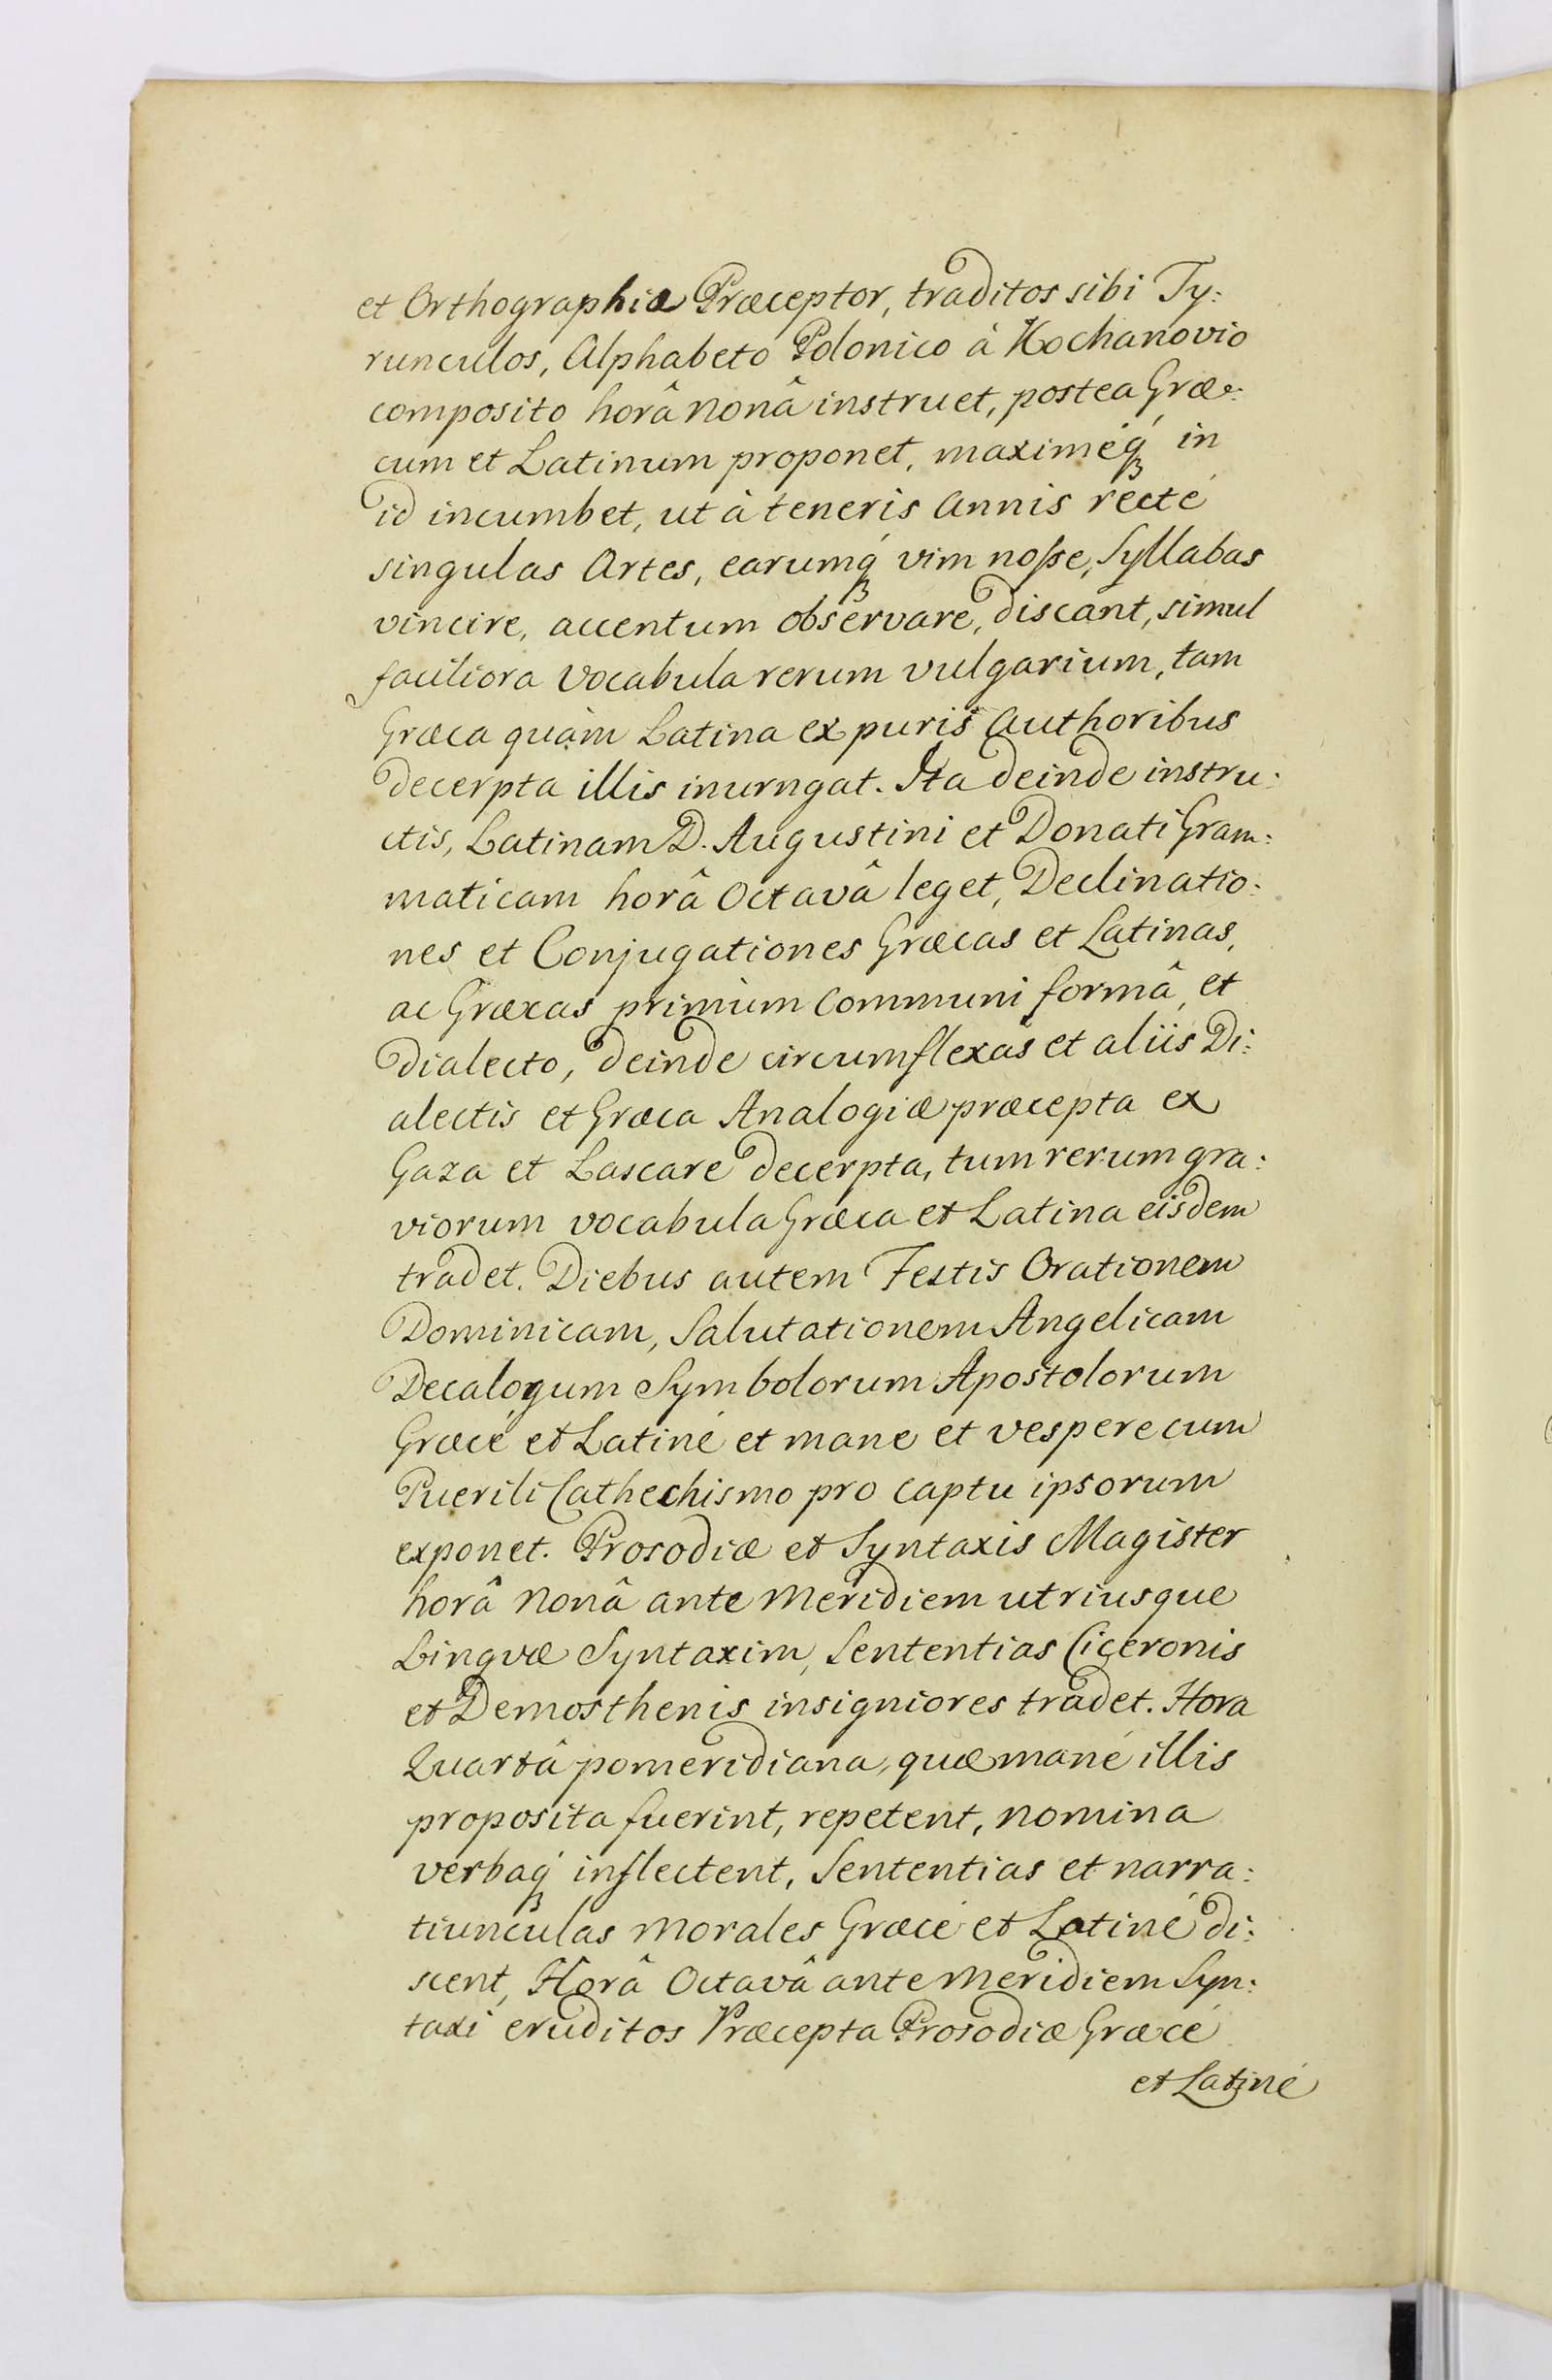 et Orthographiæ Præceptor, traditos sibi Ty:
runculos, Alphabeto Polonico à Kochanovio
composito horâ Nonâ instruet, postea Græ:
cum et Latinum proponet, maximéq́ꝫ in
id incumbet, ut à teneris Annis recté
singulas Artes, earumq́ꝫ vim noſse, Syllabas
vincire, accentum observare, discant, simul
faciliora Vocabula rerum vulgarium, tam
Græca quàm Latina ex puris Authoribus
decerpta illis inurngat. Ita deinde instru:
ctis, Latinam D. Augustini et Donati Gram:
maticam horâ Octavâ leget, Declinatio:
nes et Conjugationes Græcas et Latinas,
ac Græcas primùm Communi formâ, et
Dialecto, deinde circumflexas et aliis Di:
alectis et Græca Analogiæ præcepta ex
Gaza et Lascare decerpta, tum rerum gra:
viorum vocabula Græca et Latina eisdem
tradet. Diebus autem Festis Orationem
Dominicam, Salutationem Angelicam
Decalogum Symbolorum Apostolorum
Græcé et Latiné et mane et vespere cum
Puerili Cathechismo pro captu ipsorum
exponet. Prosodiæ et Syntaxis Magister
horâ Nonâ ante Meridiem utriusque
Linguæ Syntaxim, Sententias Ciceronis
et Demosthenis insigniores tradet. Hora
Quartâ pomeridiana, quæ mané illis
proposita fuerint, repetent, nomina
verbaq́ꝫ inflectent, Sententias et narra:
tiunculas Morales Græcé et Latiné di:
scent, Horâ Octavâ ante Meridiem Syn:
taxi eruditos Præcepta Prosodiæ Græcé
et Latiné